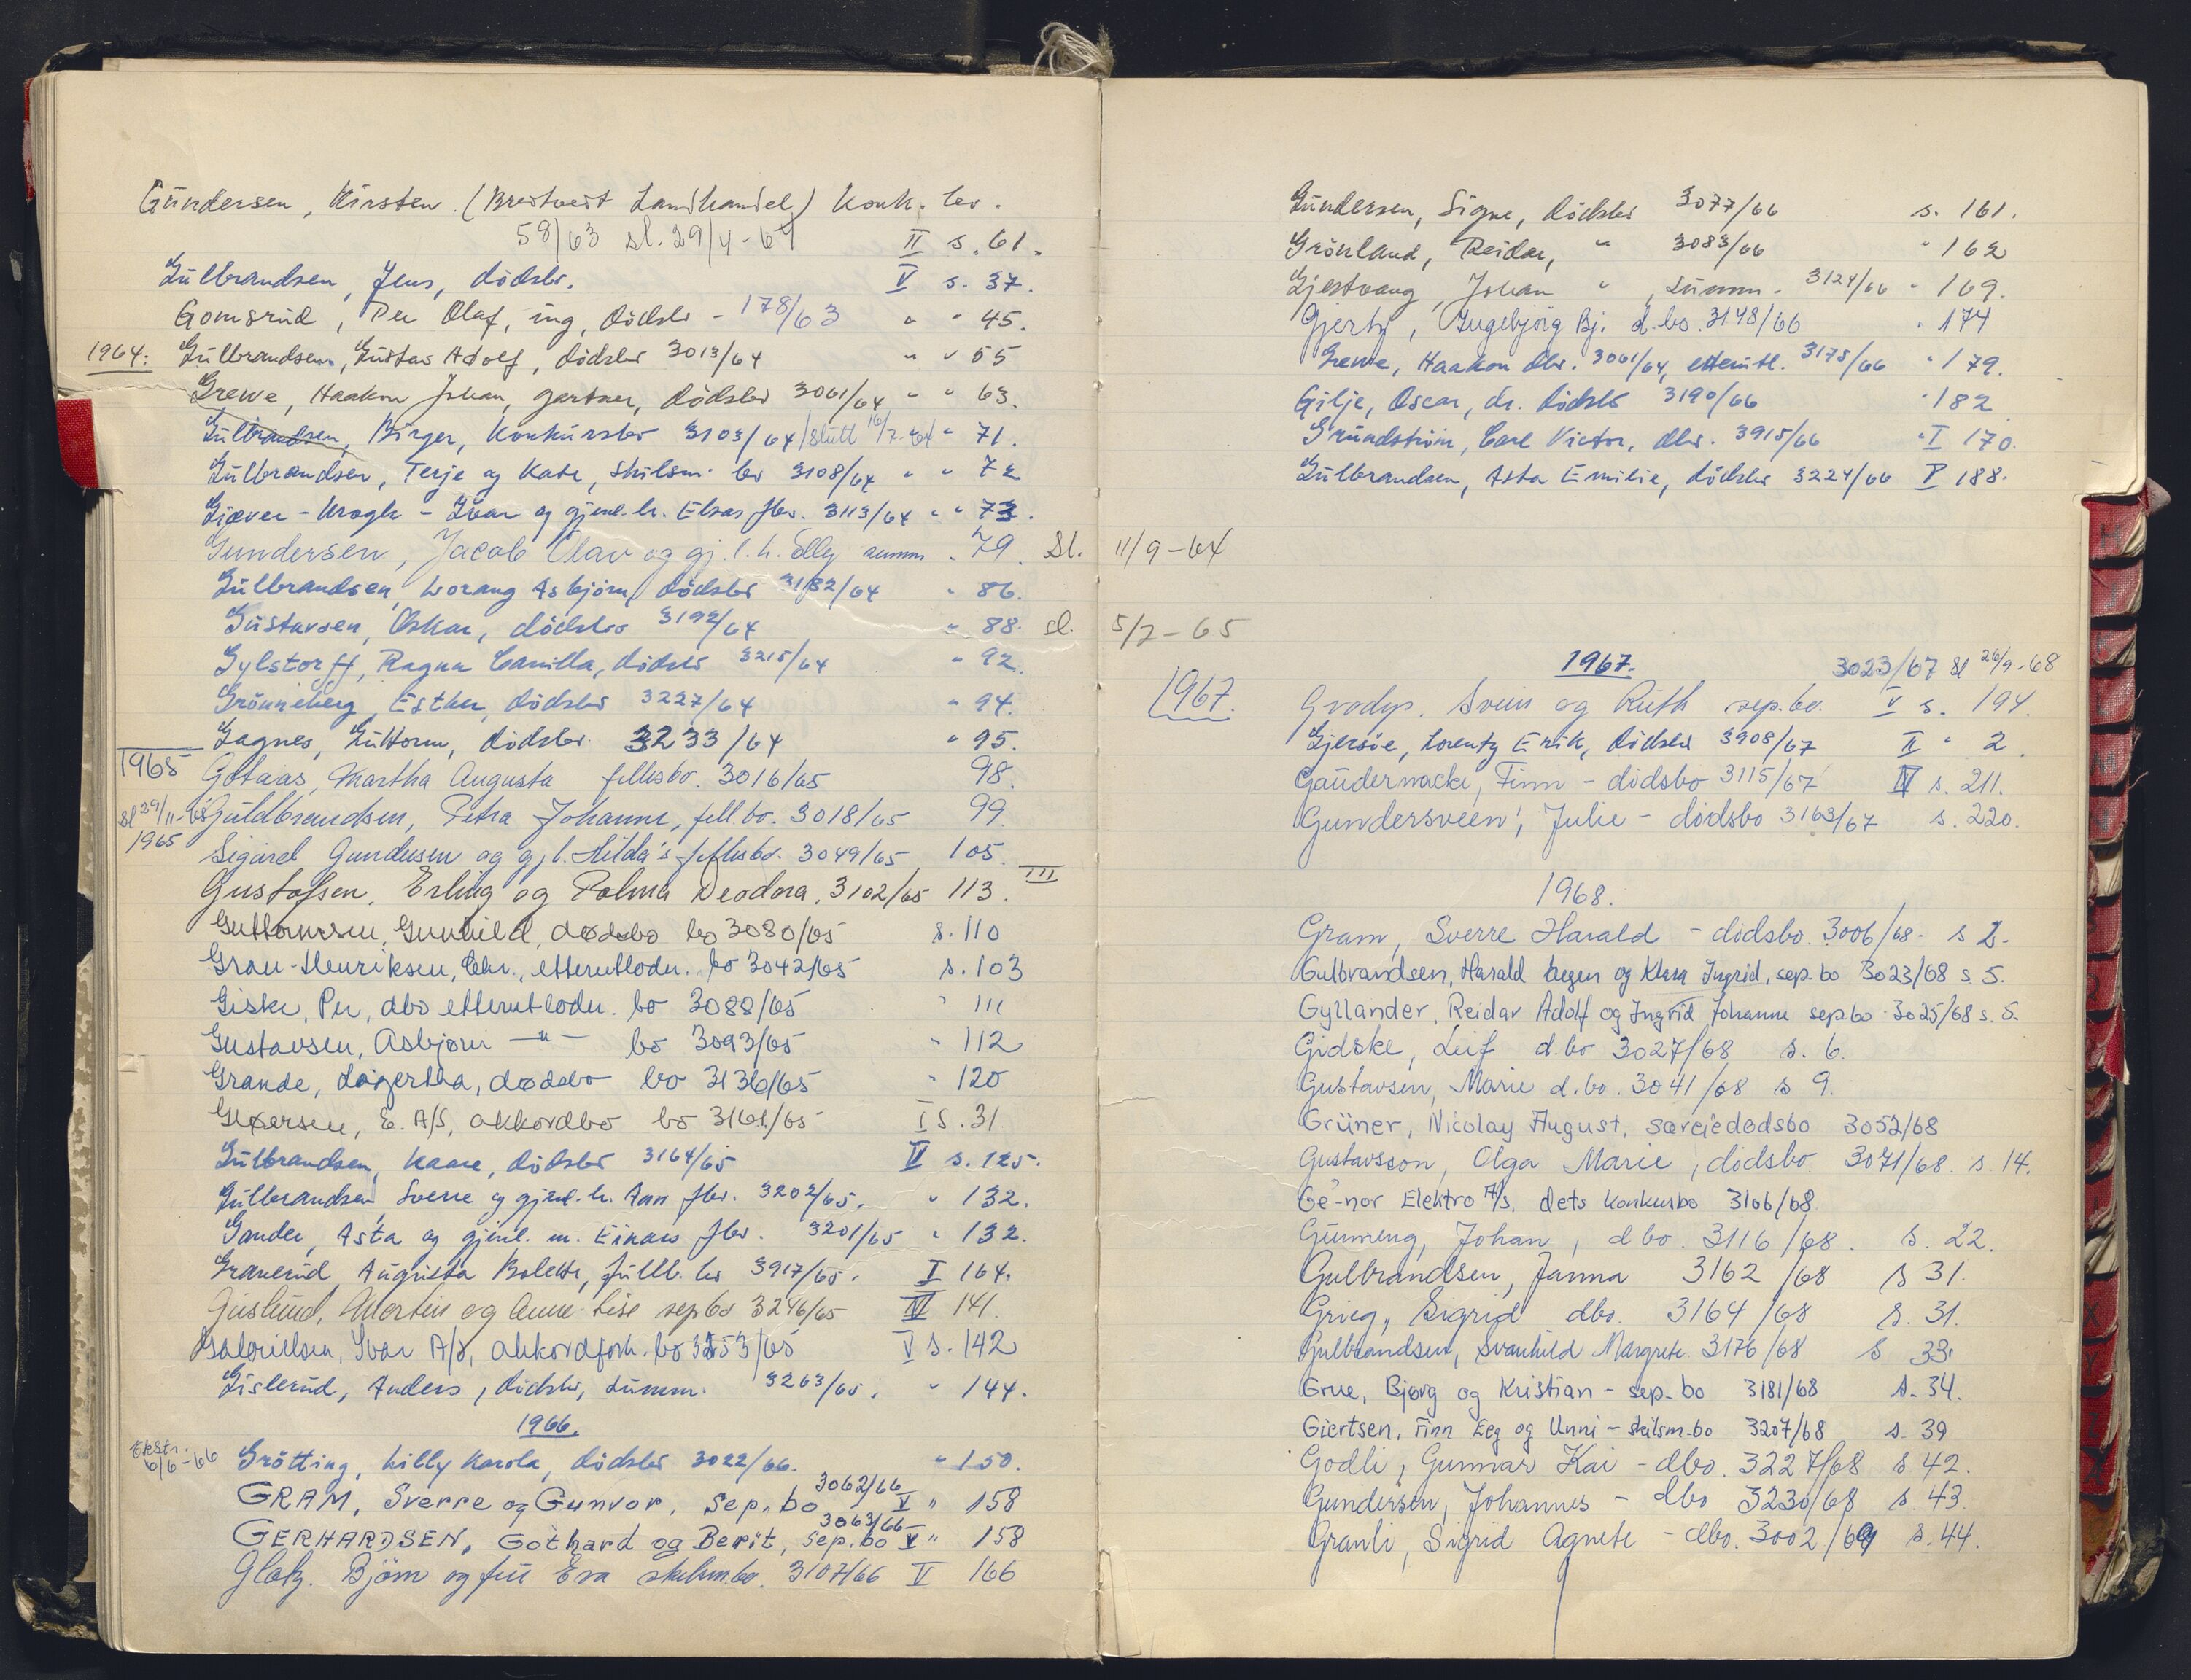 Gundersen, Kirsten (Breitveit Landhandel) Konk. bo.
58/63 sl. 29/4-64 II s. 61.
Gulbrandsen, Jens, dödsbo. V s. 37.
Gomsrud, Per Olaf, ing, dödsbo - 178/63 " " 45.
1964: Gulbrandsen, Gustav Adolf, dödsbo 3013/64 " " 55
Grewe, Haakon Johan, gartner, dödsbo 3061/64 " " 63.
Gulbrandsen, Birger, Konkursbo 3103/64 /slutt 16/7-64 " 71.
Gulbrandsen, Terje og Kate, skilsm. bo 3108/64 " " 72
Gjæver-Krogh - Ivar og gjenl. h. Elsas fbo. 3113/64 " " 73.
Gundersen, Jacob Olav og gj. l. h. Elly summ. " 79. Sl. 11/9-64
Gulbrandsen, Asbjörn, dödsbo 3182/64 " 86.
Gustavsen, Oskar, dödsbo 3192/64 " 88. sl. 5/2-65
Gylstorff, Ragna Camilla, dödsbo 3215/64 " 92.
Grönneberg, Esther, dödsbo 3227/64 " 94.
Gagnes, Guttorm, dödsbo 3233/64 " 95.
1965 Götaas, Martha Augusta fellesbo. 3016/65 98.
sl 29/11-65 Guldbrandsen, Petra Johanne, fell.bo. 3018/65 99.
1965 Sigurd Gundersen og gjl. Hilda's fellesbo. 3049/65 105.
Gustafsen, Erling og Palma Deodora, 3102/65 113. III
Guttormsen, Gunhild, dødsbo bo 3080/65 s. 110
Grau-Henriksen, Chr., etterutlodn. bo 3042/65 s. 103
Giske, Per, dbo etterutlodn. bo 3088/65 " 111
Gustavsen, Asbjørn —"— bo 3093/65 " 112
Grande, Lagertha, dødsbo bo 3136/65 " 120
E. A/S, akkordbo bo 3161/65 I s. 31
Gulbrandsen, Kaare, dödsbo 3164/65 V s. 125.
Gulbrandsen, Sverre og gjenl. h. Ann fbo. 3202/65. " 132.
Gander, Asta og gjenl. m. Einars fbo. 3201/65 " 132.
Granerud, Augusta Bolette, fullb. bo 3917/65. I 164.
Guslund, Martin og Anne-Lise sepbo 3246/65 IV 141.
Gabrielsen, Ivar A/S, akkordforh. bo 3253/65 V s. 142
Gislerud, Anders, dödsbo, summ. 3263/65. " 144.
1966.
Ekstr. 6/6-66 Grötting, Lilly Karola, dödsbo 3022/66. " 150.
GRAM, Sverre og Gunvor, sep. bo 3062/66 V " 158
GERHARDSEN, Gothard og Berit, sep. bo 3063/66 V " 158
Glatz. Bjørn og fru Eva skilsm.bo. 3107/66 V 166
Gundersen, Signe, dödsbo 3077/66 s. 161.
Grönland, Reidar, " 3083/66 " 162
Gjestvang, Johan ", summ. 3124/66 " 169.
Gjertz, Ingebjörg Bj. d. bo. 3148/66 " 174
Grewe, Haakon dbo. 3061/64, etterutl. 3175/66 " 179.
Gilje, Oscar, dr. dödsbo 3190/66 " 182
Grundström, Carl Victor, dbo. 3915/66 " I 170.
Gulbrandsen, Asta Emilie, dödsbo 3224/66 V 188.
1967. 3023/67 sl 26/9-68
1967. Svein og Ruth sep.bo. V s. 194.
Gjersöe, Lorentz Erik, dödsbo 3908/67 II " 2.
Gaudernack, Finn - dödsbo 3115/67 IV s. 211.
Gundersveen, Julie - dödsbo 3163/67 s. 220.
1968.
Gram, Sverre Harald - dödsbo. 3006/68. s 2.
Gulbrandsen, Harald og Klara Ingrid, sep.bo 3023/68 s. 5.
Gyllander, Reidar Adolf og Ingrid Johanne sep.bo 3025/68 s. 5.
Gidske, Leif d.bo 3027/68 s. 6.
Gustavsen, Marie d.bo. 3041/68 s 9.
Grüner, Nicolay August, særeiedødsbo 3052/68
Gustavsson, Olga Marie, dödsbo 3071/68. s. 14.
Ge-nor Elektro A/S. dets konkursbo 3106/68
Gunneng, Johan, d bo. 3116/68. s. 22.
Gulbrandsen, Janna 3162/68 s 31.
Grieg, Sigrid dbo. 3164/68 s. 31.
Gulbrandsen, Svanhild Margrete. 3176/68 s 33.
Grue, Bjørg og Kristian - sep. bo 3181/68 s. 34.
Giertsen, Finn Eeg og Unni - skilsm.bo 3207/68 s. 39
Godli, Gunnar Kai - dbo. 3227/68 s 42.
Gundersen, Johannes - dbo 3230/68 s. 43.
Granli, Sigrid Agnete - dbo. 3002/69 s. 44.